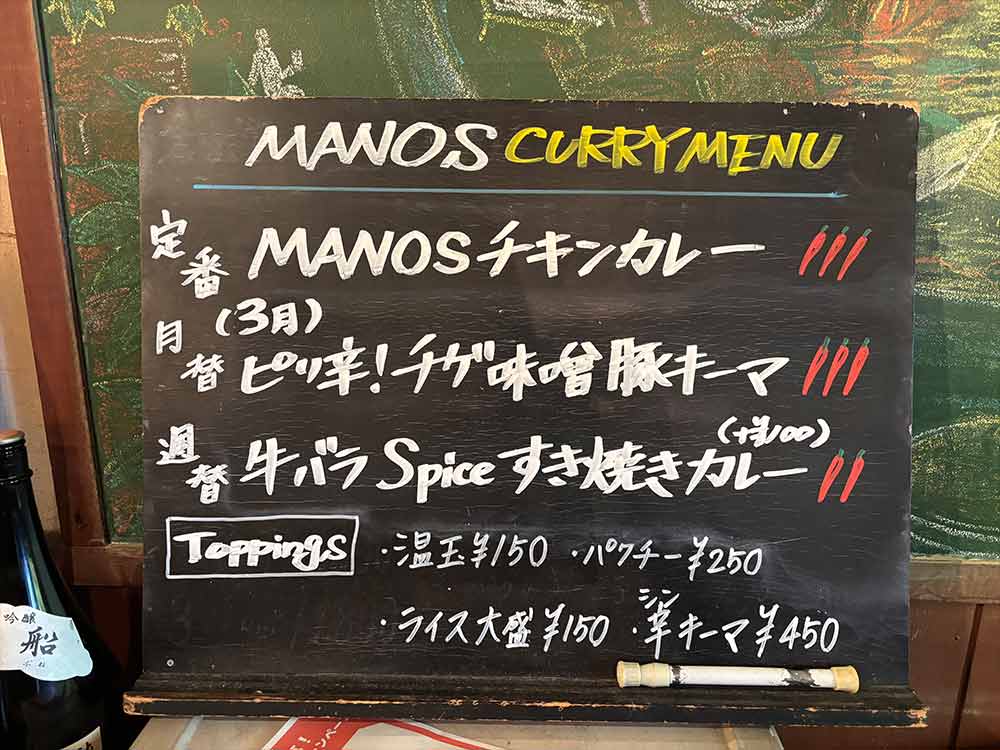 MANOS CURRY MENU
定番 MANOS チキンカレー
月替 (3月)
ピリ辛!チゲ味噌豚キーマ
週替 牛バラ Spice すき焼きカレー (+¥100)
Toppings
・温玉¥150 ・パクチー¥250
・ライス大盛¥150 ・シン キーマ¥450
吟醸
船